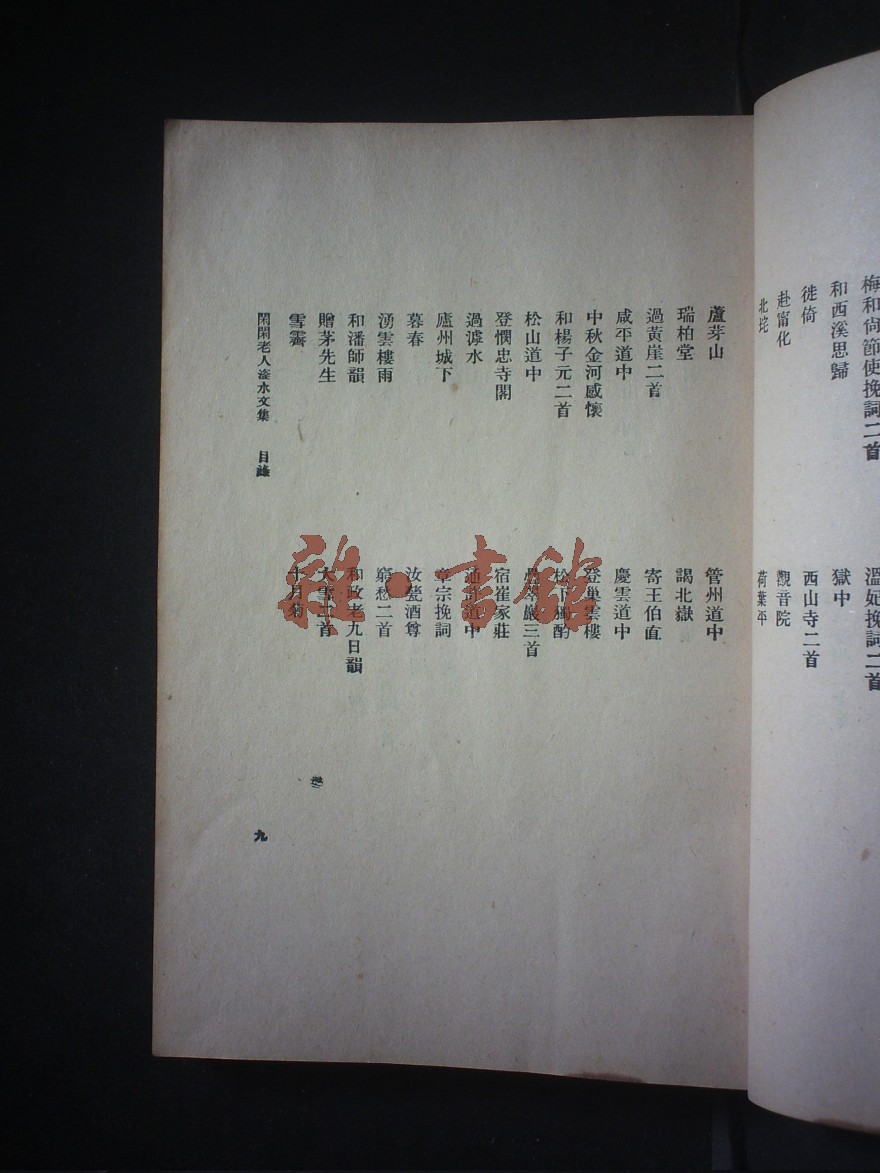 梅和尙節使挽詞二首
溫妃挽詞二首
和西溪思歸
獄中
徙倚
西山寺二首
赴甯化
觀音院
北垞
荷葉平
蘆芽山
管州道中
瑞柏堂
謁北嶽
過黃崖二首
寄王伯直
咸平道中
慶雲道中
中秋金河感懷
登巢雲樓
和楊子元二首
松下獨酌
松山道中
疊翠巖三首
登憫忠寺閣
宿崔家莊
過滹水
通許道中
廬州城下
章宗挽詞
暮春
汝甆酒尊
湧雲樓雨
窮愁二首
和潘師韻
和政老九日韻
贈茅先生
大雪二首
雪霽
十月菊
閑閑老人滏水文集 目錄
九
雜·書館